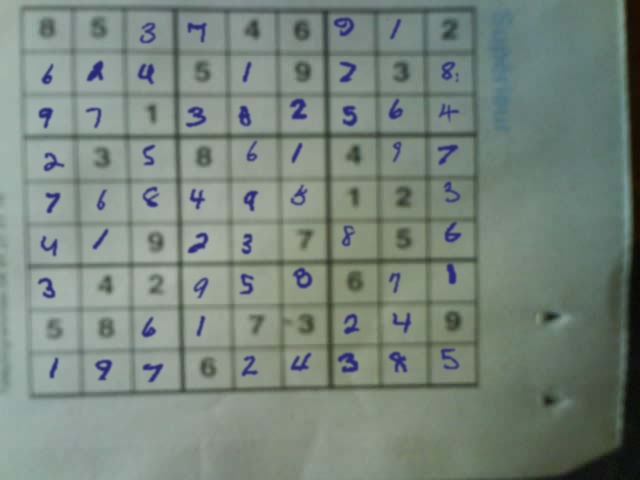 8 5 3 7 4 6 9 1 2
6 2 4 5 1 9 7 3 8
9 7 1 3 8 2 5 6 4
2 3 5 8 6 1 4 9 7
7 6 8 4 9 5 1 2 3
4 1 9 2 3 7 8 5 6
3 4 2 9 5 8 6 7 1
5 8 6 1 7 3 2 4 9
1 9 7 6 2 4 3 8 5
Supérieur